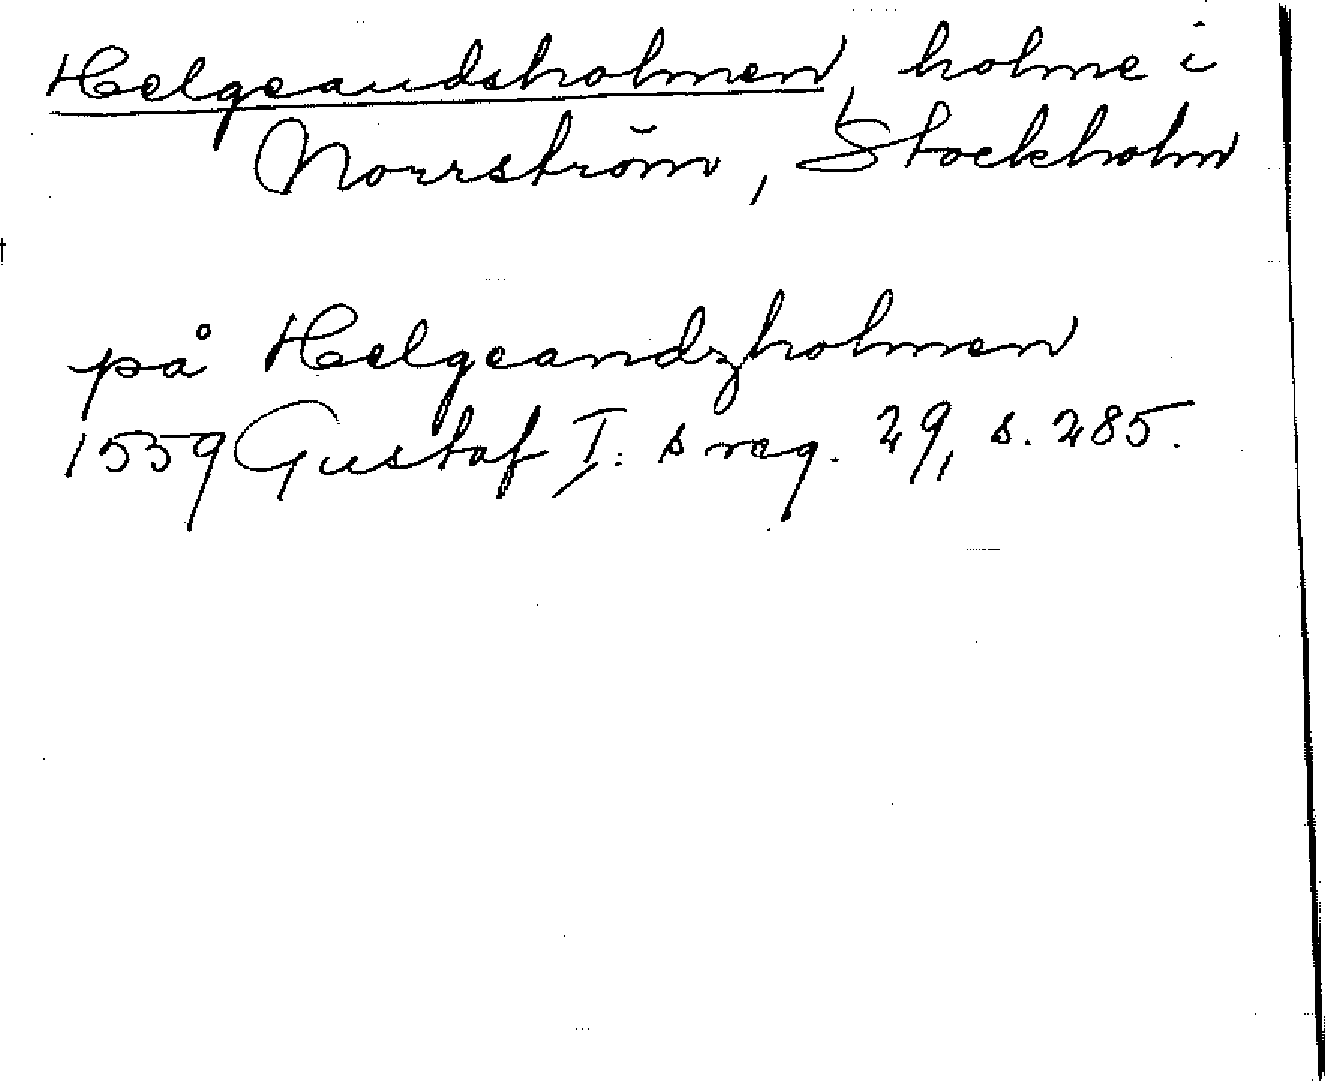 Helgeandsholmen, holme i
Norrström, Stockholm
på Helgeandzholmen
1559 Gustaf I:s reg. 29, s. 285.